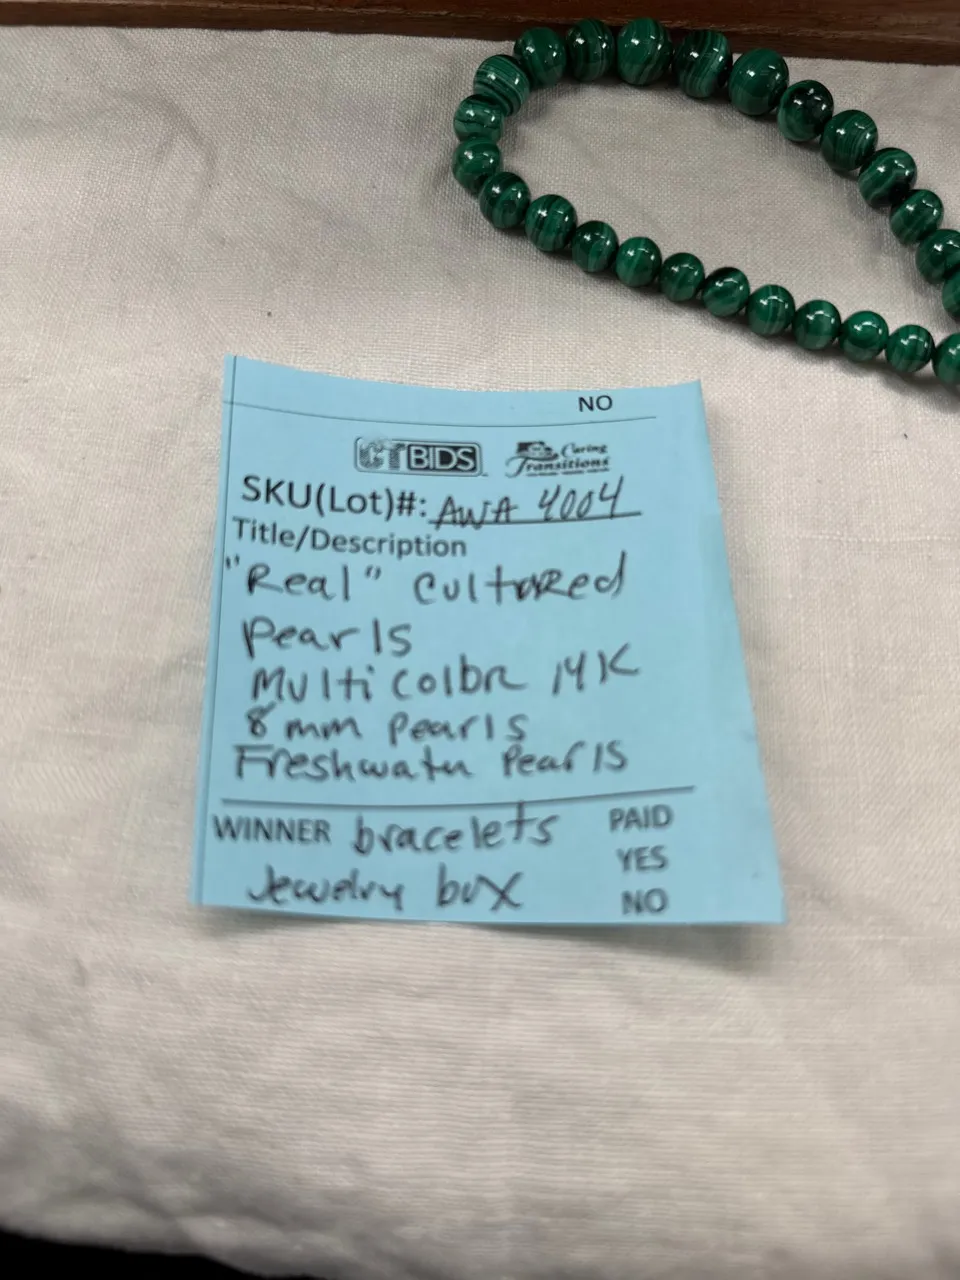 NO
CTBIDS Caring Transitions
SKU(Lot)#: AWA 4004
Title/Description
"Real" cultured
pearls
Multi color 14K
8 mm pearls
Freshwater Pearls
WINNER bracelets PAID
YES
Jewelry box NO